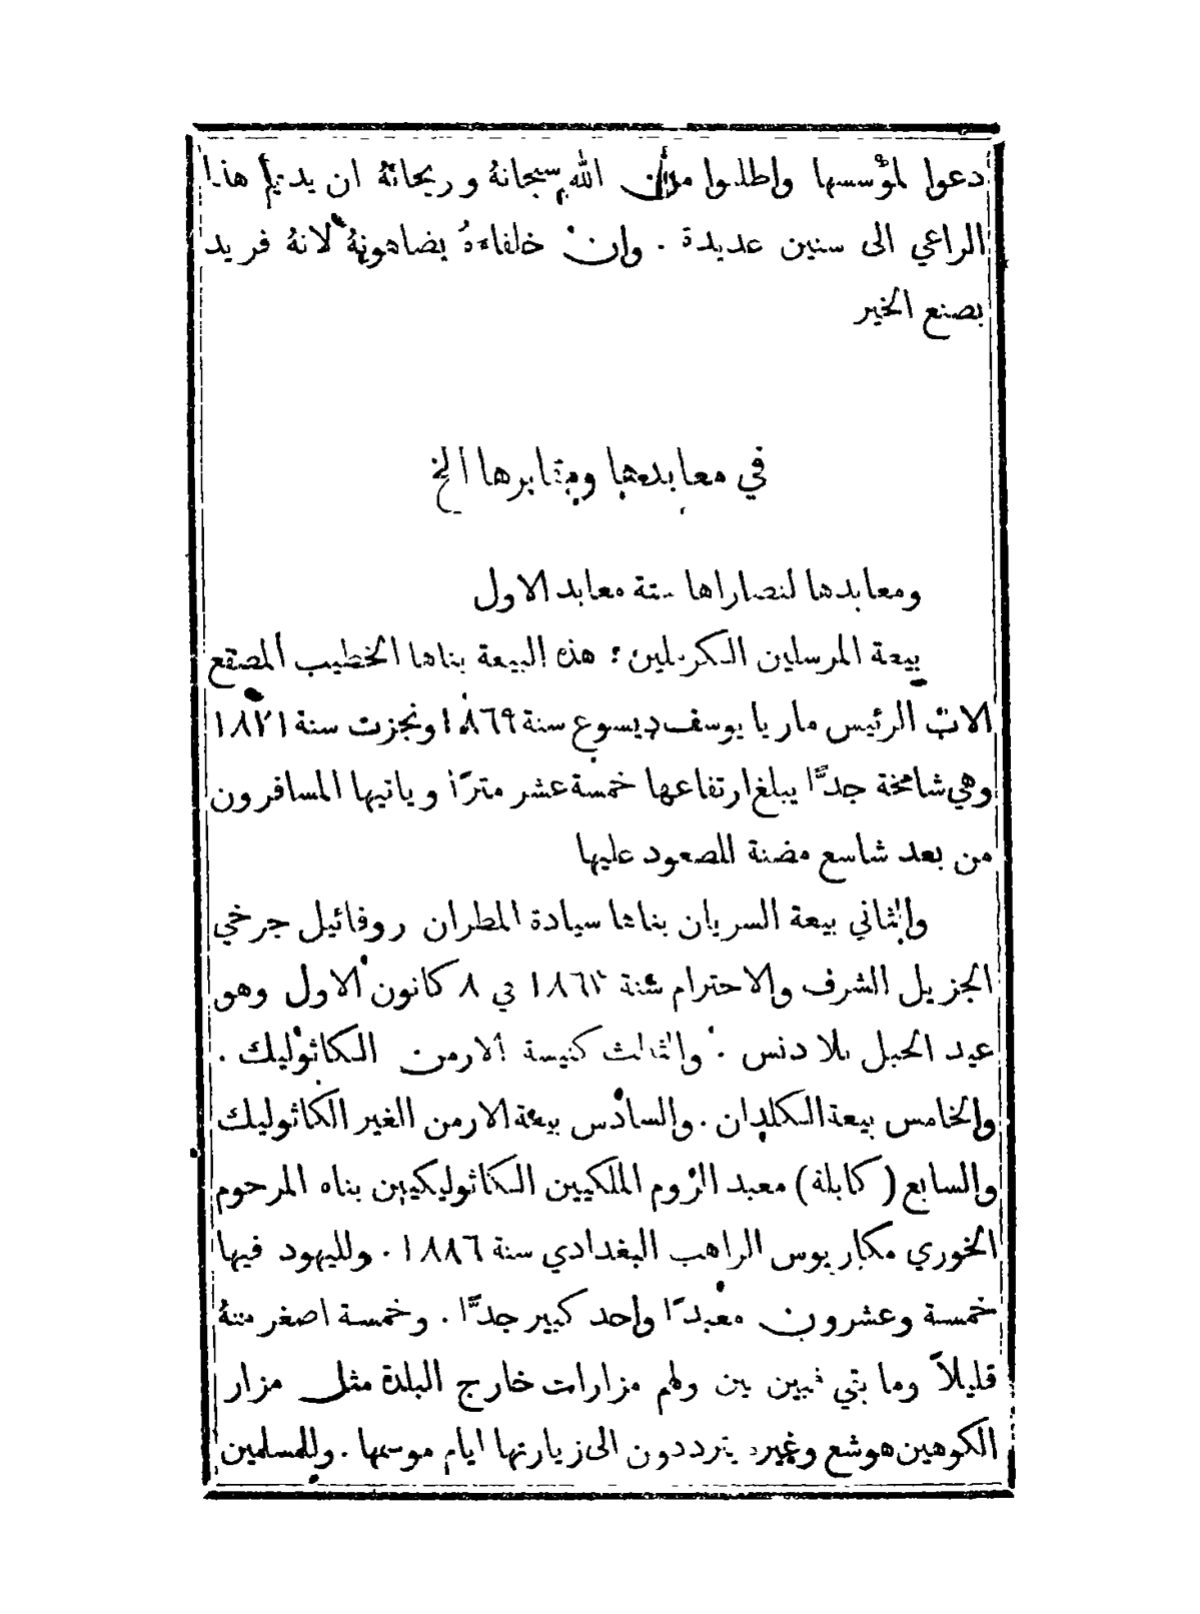 دعوا لمؤسسها واطلبوا من الله سبحانهُ وريحانهُ ان يديم هذا
الراعي الى سنين عديدة . وان خلفاءهُ يضاهونهُ لانهُ فريد
بصنع الخير
في معابدها ومقابرها الخ
ومعابدها لنصاراها ستة معابد الاول
بيعة المرسلين الكرملين : هذه البيعة بناها الخطيب المصقع
الاب الرئيس ماريا يوسف ديسوع سنة ١٨٦٩ ونجزت سنة ١٨٧١
وهي شامخة جدًّا يبلغ ارتفاعها خمسة عشر مترًا وياتيها المسافرون
من بعد شاسع مضنة الصعود عليها
والثاني بيعة السريان بناها سيادة المطران روفائيل جرخي
الجزيل الشرف والاحترام سنة في ٨ كانون الاول وهو
عيد الحبل بلا دنس . والثالث كنيسة الارمن الكاثوليك .
والخامس بيعة الكلدان . والسادس بيعة الارمن الغير الكاثوليك
والسابع (كابلة) معبد الروم الملكيين الكاثوليكيين بناه المرحوم
الخوري مكاريوس الراهب البغدادي سنة ١٨٨٦ . ولليهود فيها
خمسة وعشرون معبدًا واحد كبير جدًّا . وخمسة اصغر منهُ
قليلاً وما بقي فبين بين ولهم مزارات خارج البلدة مثل مزار
الكوهين هوشع وغيره يترددون الى زيارتها ايام موسمها . وللمسلمين